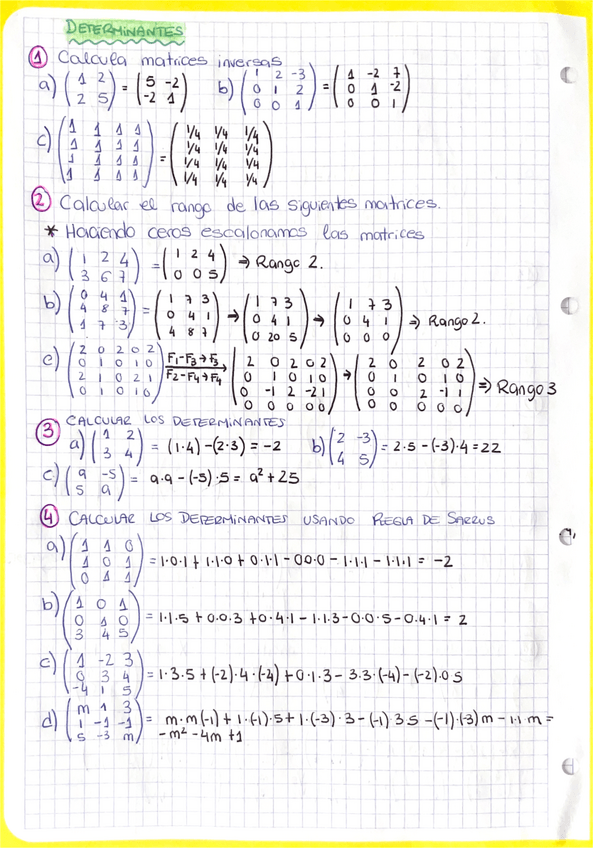 DETERMINANTES
1 Calcula matrices inversas
a) (1 2; 2 5) = (5 -2; -2 1) b) (1 2 -3; 0 1 2; 0 0 1) = (1 -2 7; 0 1 -2; 0 0 1)
c) (1 1 1 1; 1 1 1 1; 1 1 1 1; 1 1 1 1) = (1/4 1/4 1/4; 1/4 1/4 1/4; 1/4 1/4 1/4; 1/4 1/4 1/4)
2 Calcular el rango de las siguientes matrices.
* Haciendo ceros escalonamos las matrices
a) (1 2 4; 3 6 7) = (1 2 4; 0 0 5) ⇒ Rango 2.
b) (0 4 1; 4 8 7; 1 7 3) = (1 7 3; 0 4 1; 4 8 7) → (1 7 3; 0 4 1; 0 20 5) → (1 7 3; 0 4 1; 0 0 0) ⇒ Rango 2.
c) (2 0 2 0 2; 0 1 0 1 0; 2 1 0 2 1; 0 1 0 1 0) F1-F3→F3 F2-F4→F4 (2 0 2 0 2; 0 1 0 1 0; 0 -1 2 -2 1; 0 0 0 0 0) → (2 0 2 0 2; 0 1 0 1 0; 0 0 2 -1 1; 0 0 0 0 0) ⇒ Rango 3
3 CALCULAR LOS DETERMINANTES
a) (1 2; 3 4) = (1·4)-(2·3) = -2 b) (2 -3; 4 5) = 2·5-(-3)·4 = 22
c) (a -5; 5 a) = a·a-(-5)·5 = a²+25
4 CALCULAR LOS DETERMINANTES USANDO REGLA DE SARRUS
a) (1 1 0; 1 0 1; 0 1 1) = 1·0·1+1·1·0+0·1·1-0·0·0-1·1·1-1·1·1 = -2
b) (1 0 1; 0 1 0; 3 4 5) = 1·1·5+0·0·3+0·4·1-1·1·3-0·0·5-0·4·1 = 2
c) (1 -2 3; 0 3 4; -4 1 5) = 1·3·5+(-2)·4·(-4)+0·1·3-3·3·(-4)-(-2)·0·5
d) (m 1 3; 1 -1 -1; 5 -3 m) = m·m(-1)+1·(-1)·5+1·(-3)·3-(-1)·3·5-(-1)·(-3)m-1·1·m =
-m²-4m+1